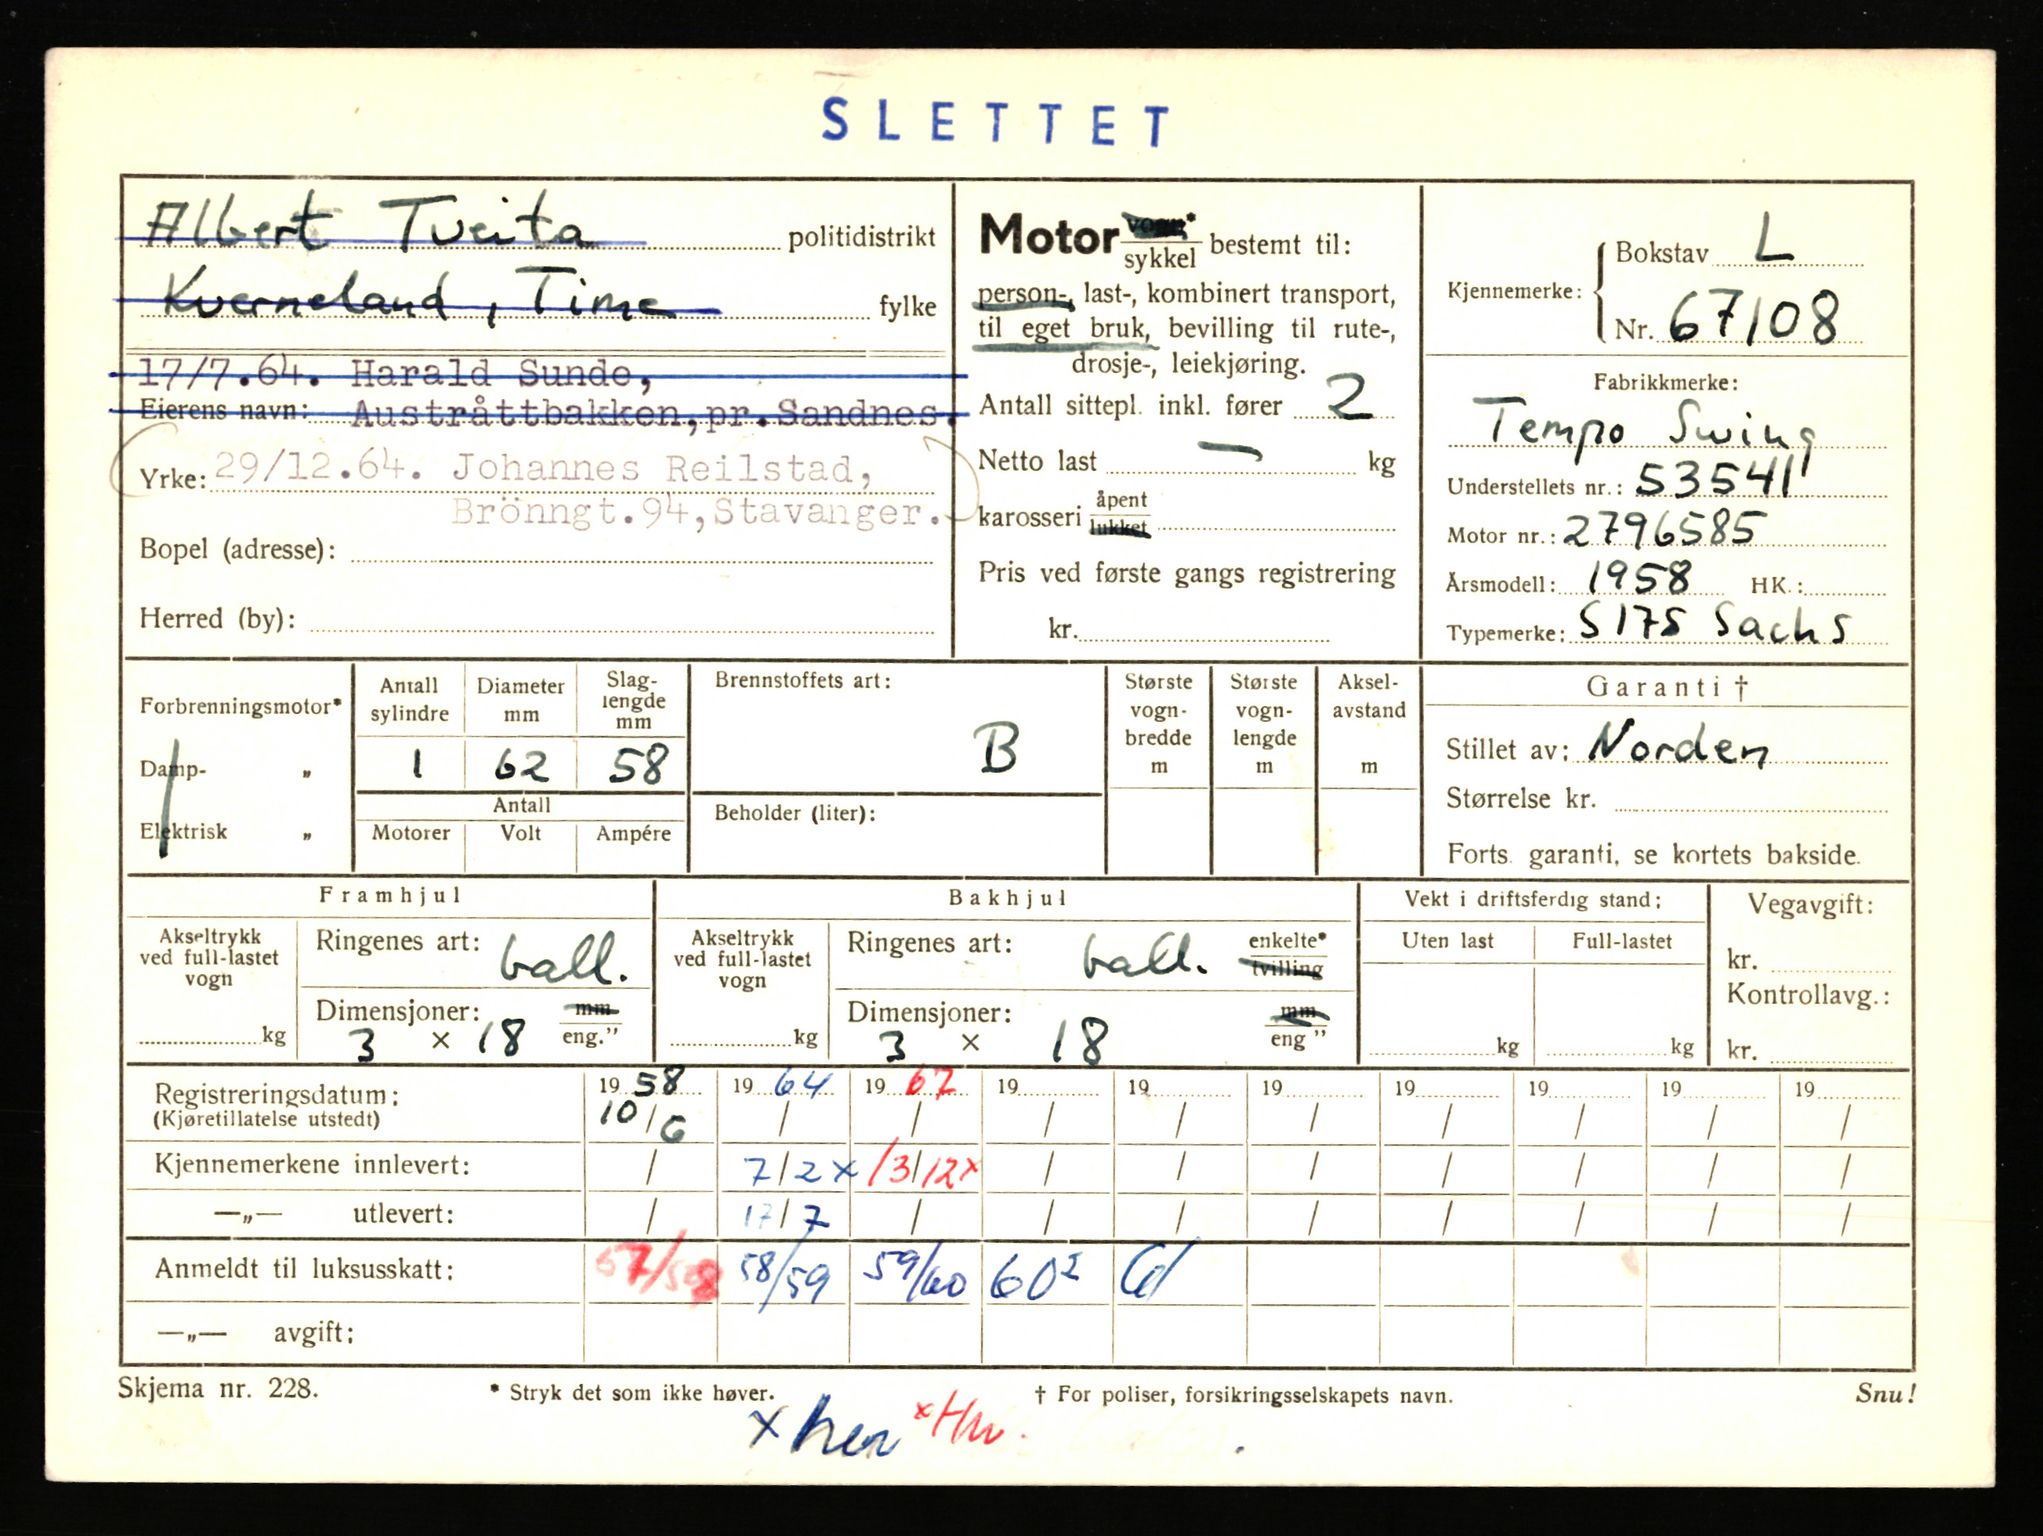 SLETTET
Albert Tveita politidistrikt
Kverneland, Time fylke
17/7.64. Harald Sunde,
Eierens navn: Austråttbakken, pr. Sandnes.
Yrke: 29/12.64. Johannes Reilstad,
Brönngt. 94, Stavanger.
Bopel (adresse):
Herred (by):
Motor vogn*
sykkel bestemt til:
person-, last-, kombinert transport,
til eget bruk, bevilling til rute-,
drosje-, leiekjøring.
Antall sittepl. inkl. fører 2
Netto last — kg
karosseri åpent
lukket
Pris ved første gangs registrering
kr.
Kjennemerke: { Bokstav L
Nr. 67108
Fabrikkmerke:
Tempo Swing
Understellets nr.: 53541
Motor nr.: 2796585
Årsmodell: 1958 HK.:
Typemerke: S175 Sachs
Forbrenningsmotor*
Damp- „
Elektrisk „
Antall sylindre
Diameter mm
Slag-lengde mm
1 62 58
Antall
Motorer Volt Ampére
Brennstoffets art:
B
Beholder (liter):
Største vogn-bredde m
Største vogn-lengde m
Aksel-avstand m
Garanti †
Stillet av: Norden
Størrelse kr.
Forts. garanti, se kortets bakside.
Framhjul
Akseltrykk ved full-lastet vogn
kg
Ringenes art: ball.
Dimensjoner: mm
3 × 18 eng.”
Bakhjul
Akseltrykk ved full-lastet vogn
kg
Ringenes art: ball. enkelte*
tvilling
Dimensjoner: mm
3 × 18 eng ”
Vekt i driftsferdig stand:
Uten last Full-lastet
kg kg
Vegavgift:
kr.
Kontrollavg.:
kr.
Registreringsdatum: 19 58 19 64 19 67 19 19 19 19 19 19 19
(Kjøretillatelse utstedt) 10/6 / / / / / / / / /
Kjennemerkene innlevert: / 7/2 x 13/12 x / / / / / / /
—„— utlevert: / 17/7 / / / / / / / /
Anmeldt til luksusskatt: 57/58 58/59 59/60 60² 61
—„— avgift:
Skjema nr. 228. * Stryk det som ikke høver. † For poliser, forsikringsselskapets navn. Snu!
x her x Hv.